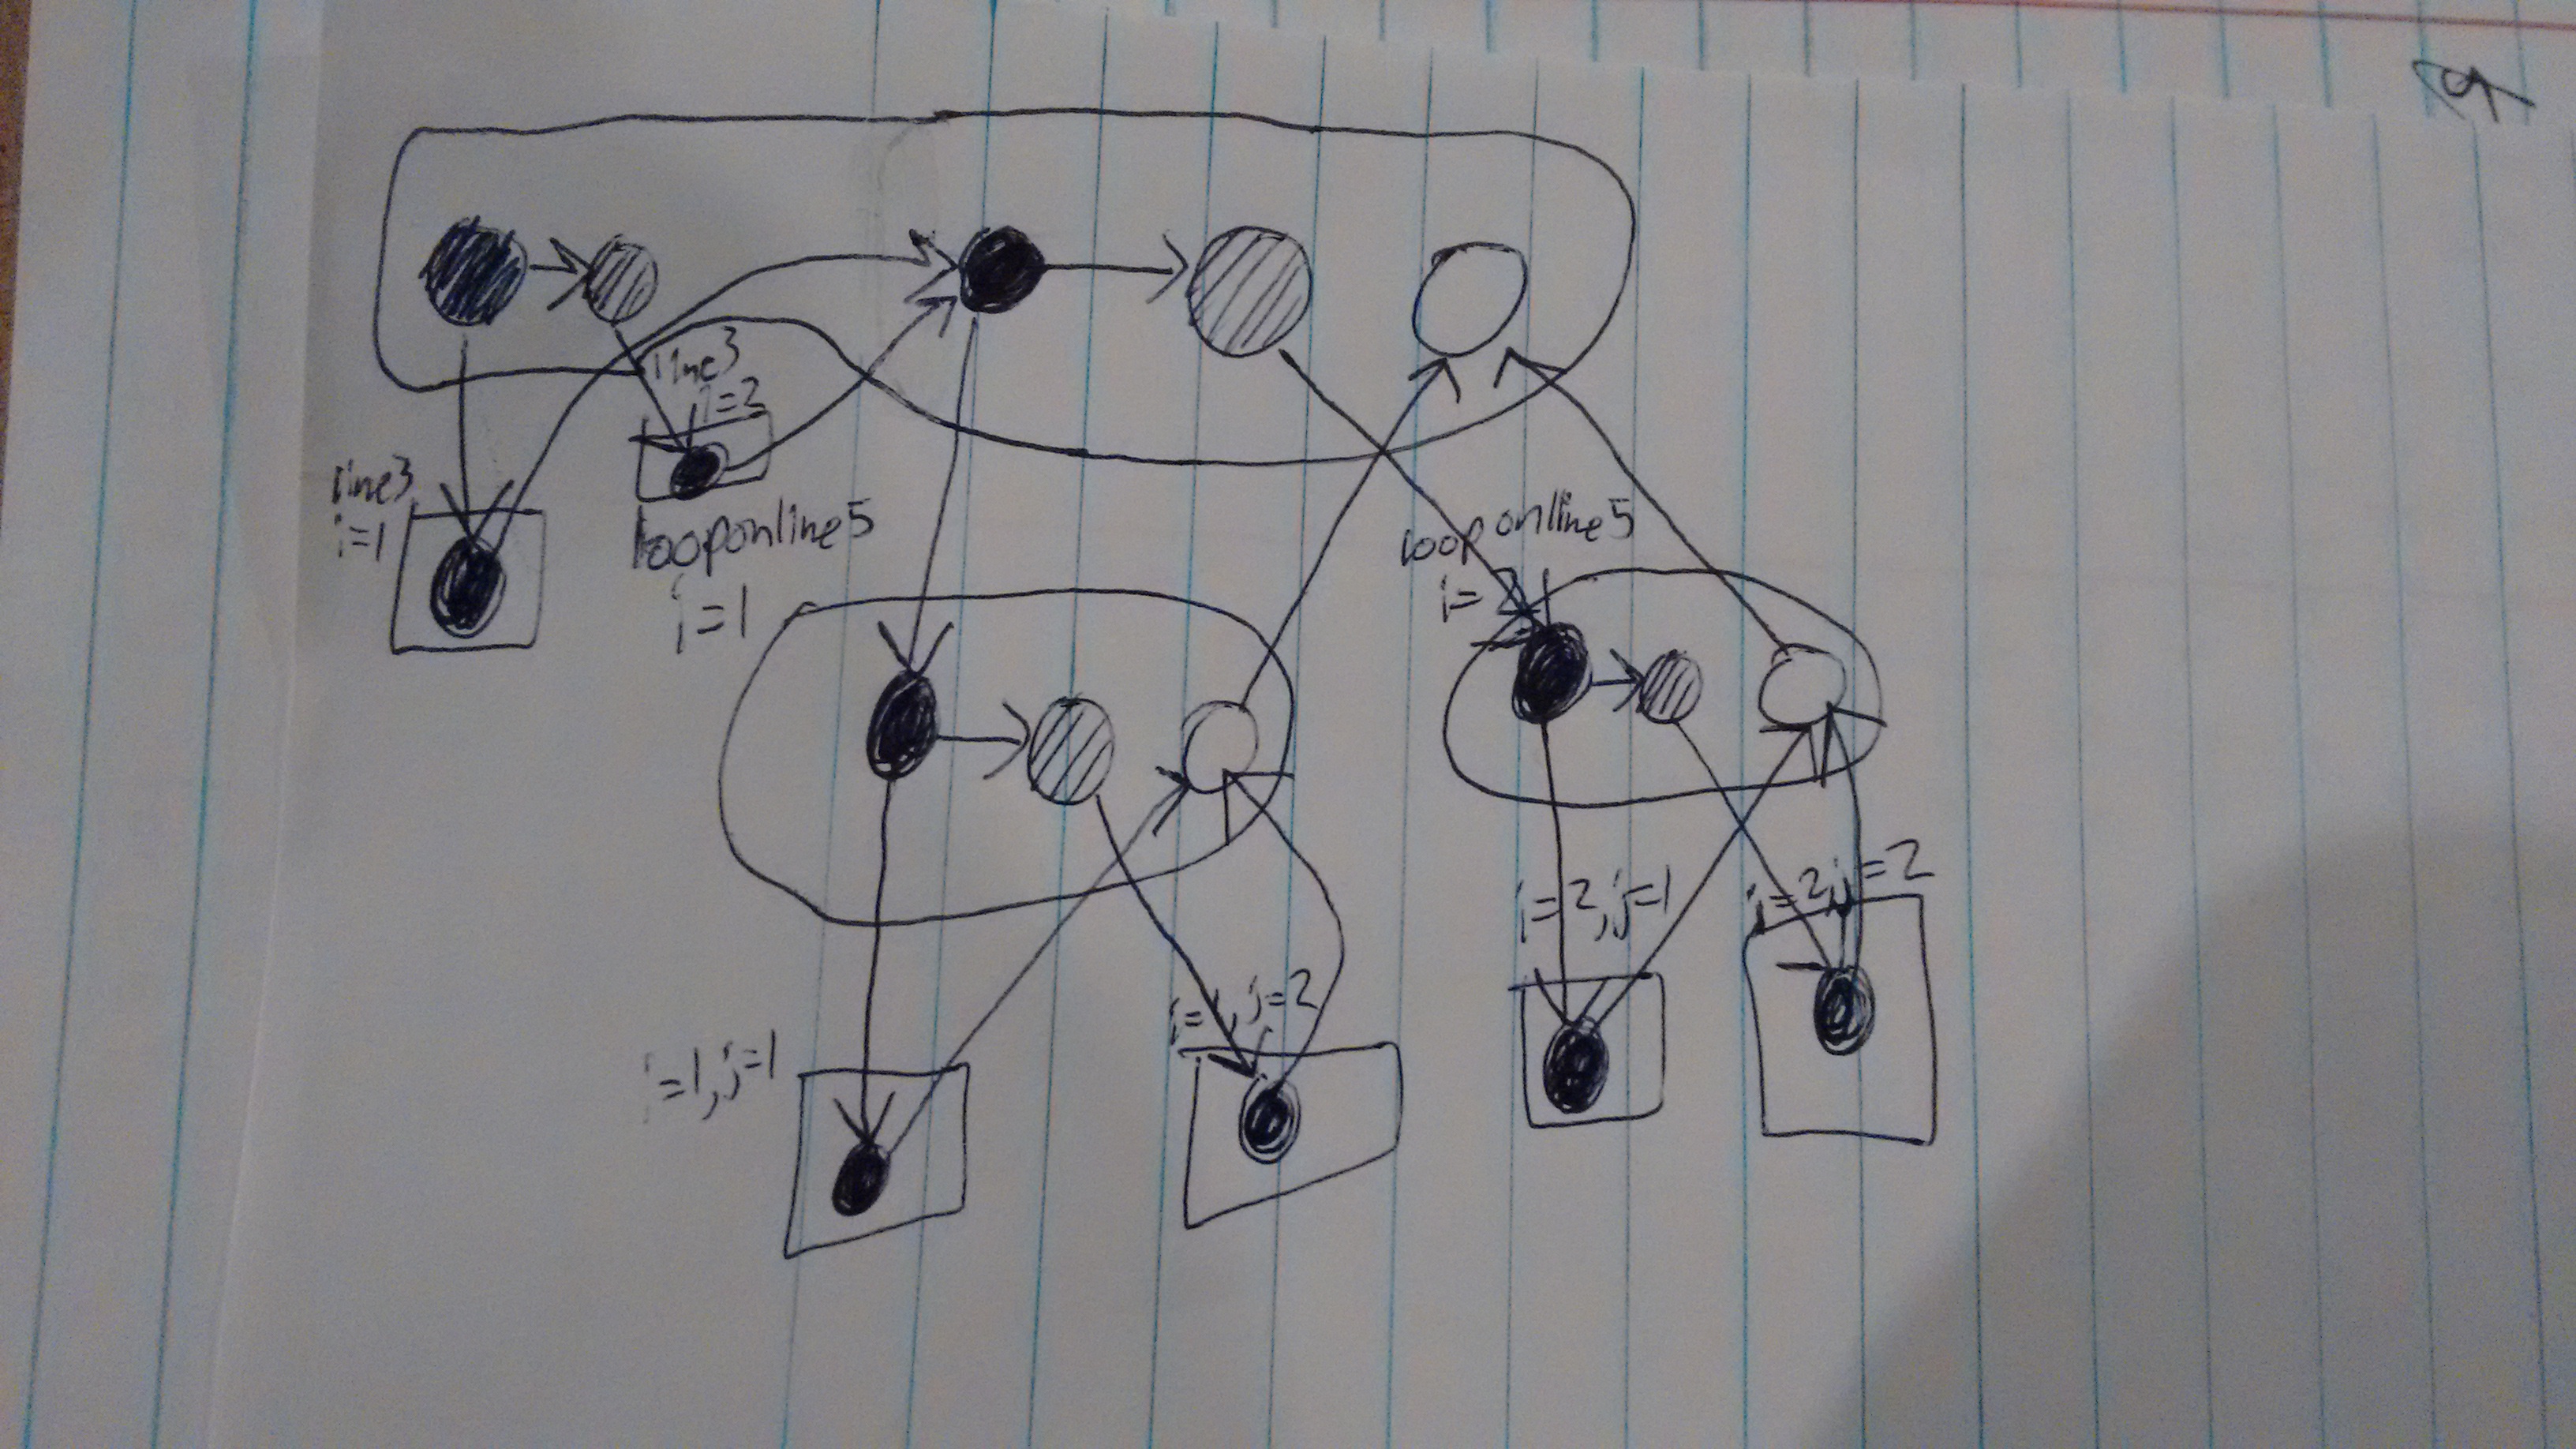 line3
i=2
line3
i=1
loop on line 5
i=1
loop on line 5
i=2
i=2,j=1
i=2,j=2
i=1,j=2
i=1,j=1